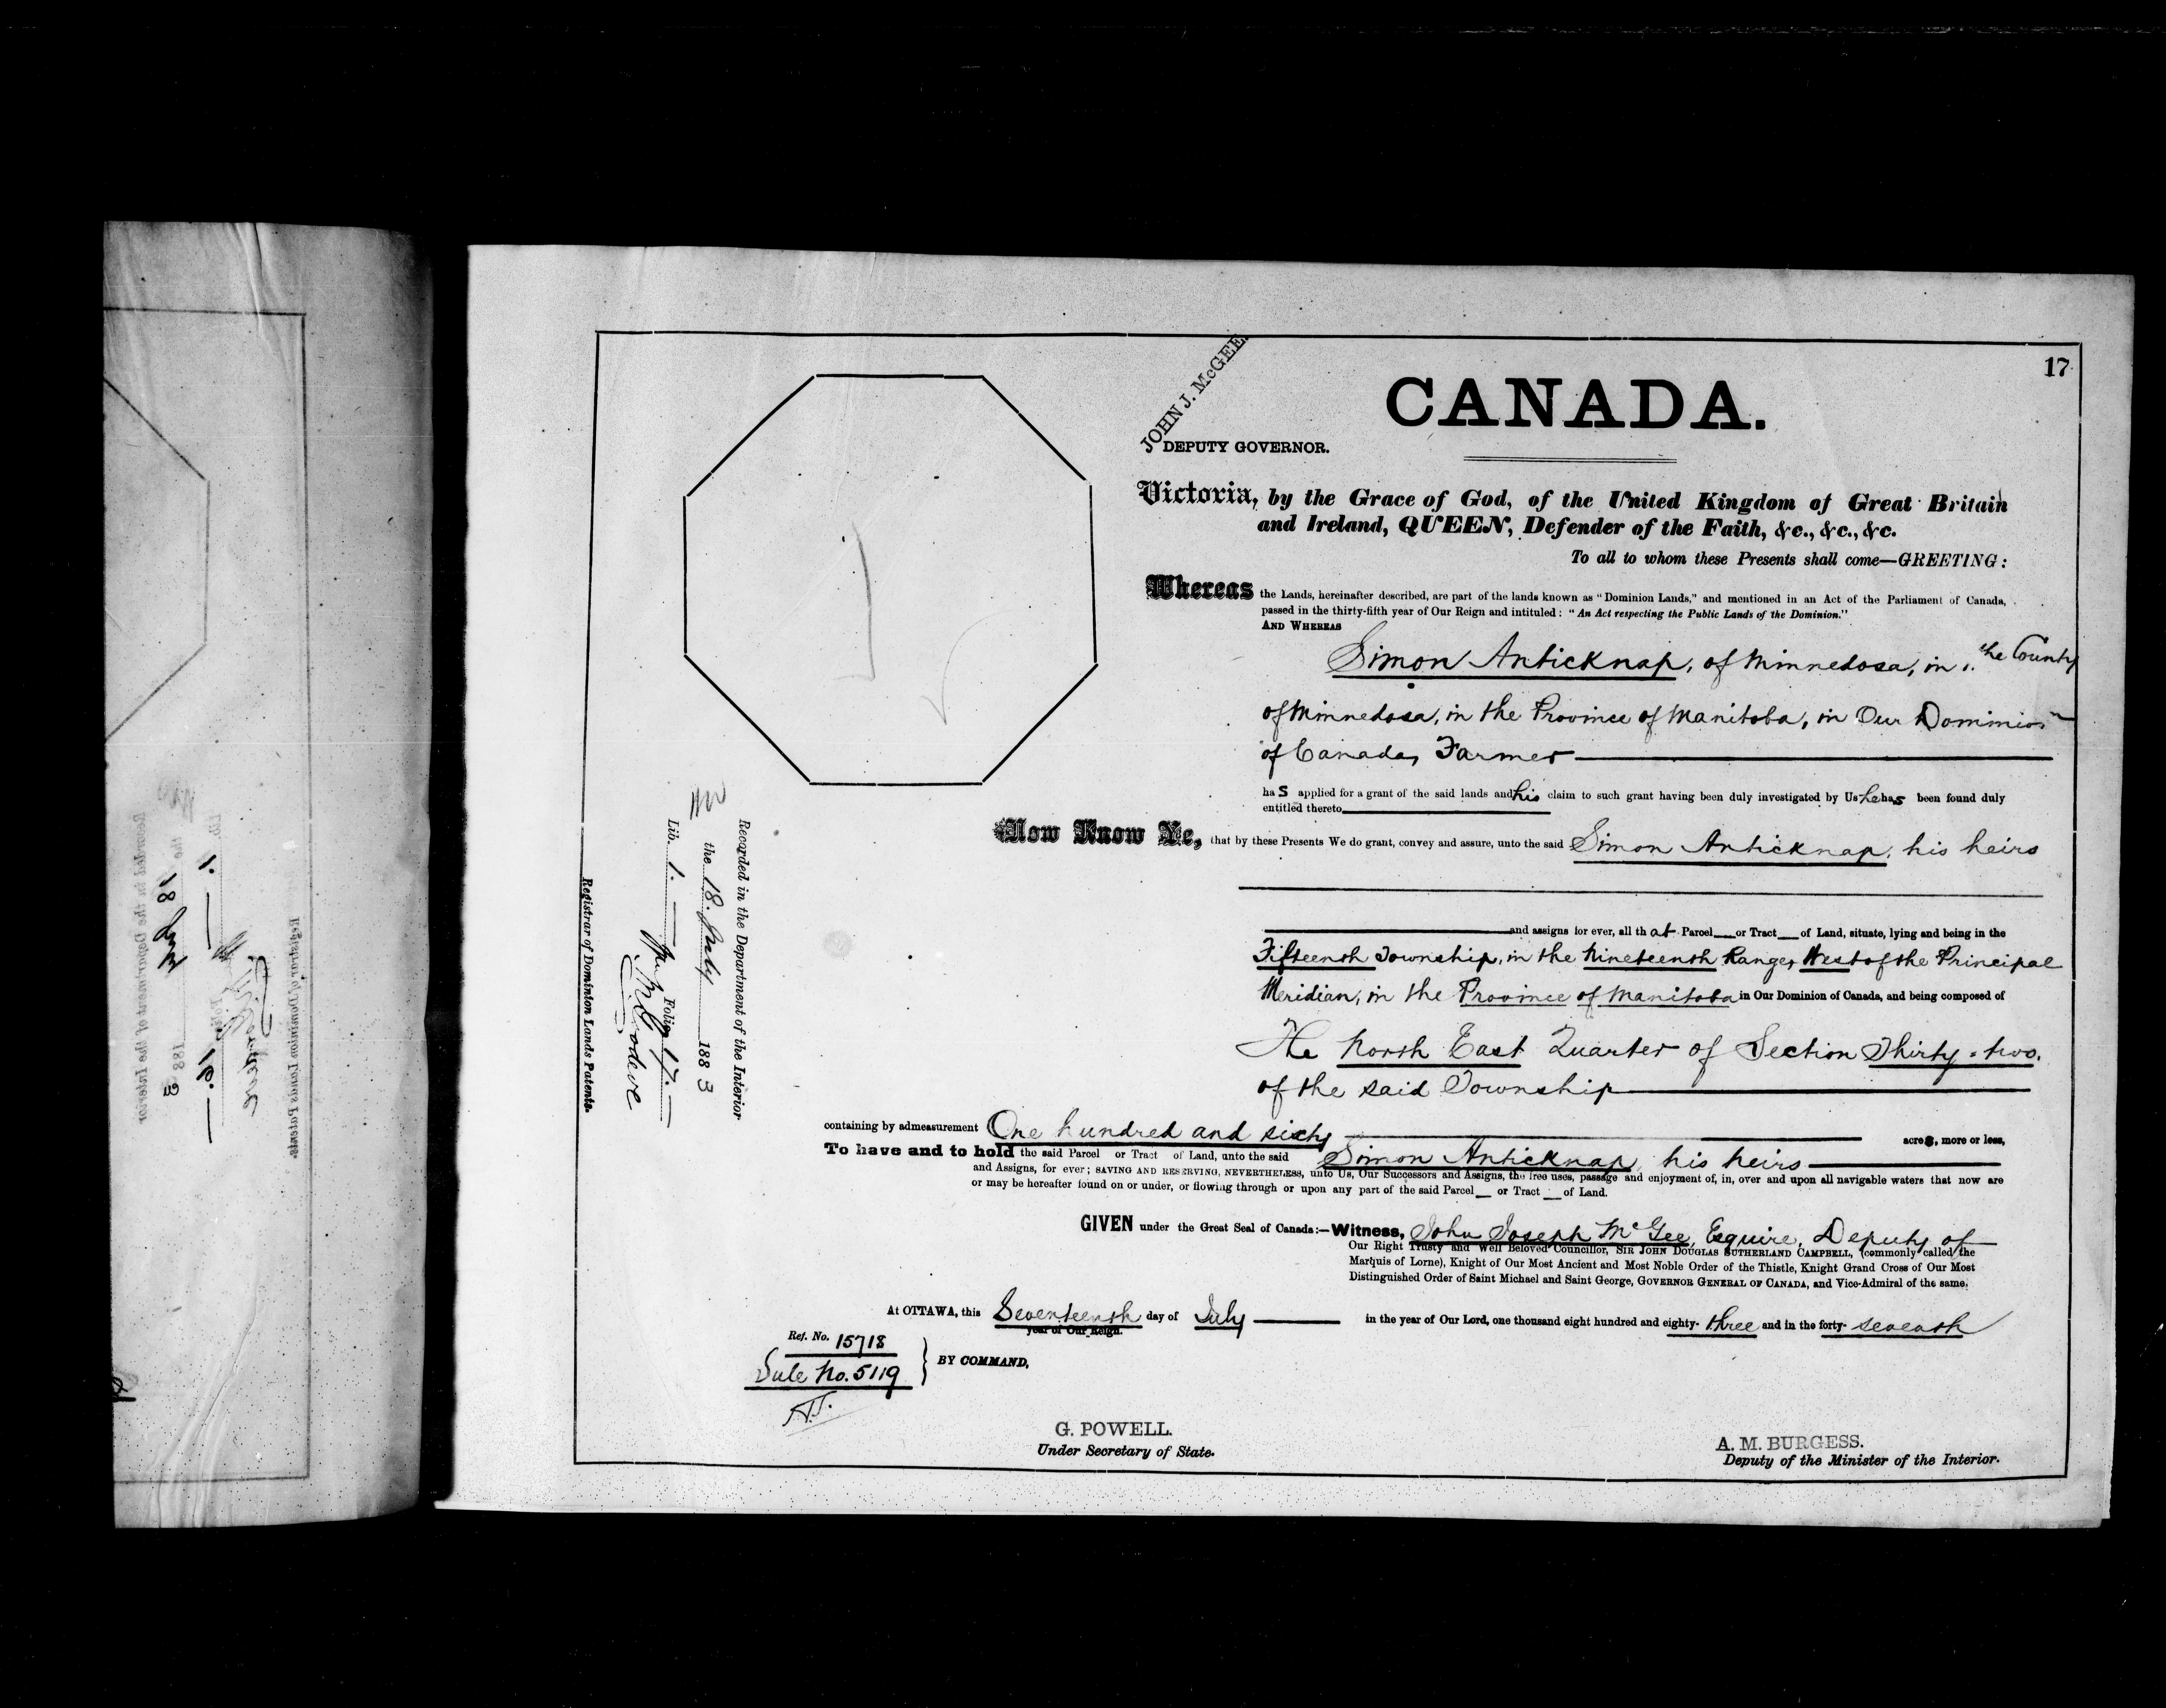 17
JOHN J. McGEE.
DEPUTY GOVERNOR.
CANADA.
Victoria, by the Grace of God, of the United Kingdom of Great Britain
and Ireland, QUEEN, Defender of the Faith, &c., &c., &c.
To all to whom these Presents shall come—GREETING:
Whereas the Lands, hereinafter described, are part of the lands known as "Dominion Lands," and mentioned in an Act of the Parliament of Canada,
passed in the thirty-fifth year of Our Reign and intituled: "An Act respecting the Public Lands of the Dominion."
AND WHEREAS
Simon Anticknap, of Minnedosa, in the County
of Minnedosa, in the Province of Manitoba, in Our Dominion
of Canada, Farmer
has applied for a grant of the said lands and his claim to such grant having been duly investigated by Us he has been found duly
entitled thereto
Now Know Ye, that by these Presents We do grant, convey and assure, unto the said Simon Anticknap, his heirs
and assigns for ever, all that Parcel or Tract of Land, situate, lying and being in the
Fifteenth Township, in the Nineteenth Range, West of the Principal
Meridian, in the Province of Manitoba in Our Dominion of Canada, and being composed of
The North East Quarter of Section Thirty-two.
of the said Township
containing by admeasurement One hundred and sixty acres, more or less,
To have and to hold the said Parcel or Tract of Land, unto the said Simon Anticknap, his heirs
and Assigns, for ever; SAVING AND RESERVING, NEVERTHELESS, unto Us, Our Successors and Assigns, the free uses, passage and enjoyment of, in, over and upon all navigable waters that now are
or may be hereafter found on or under, or flowing through or upon any part of the said Parcel or Tract of Land.
GIVEN under the Great Seal of Canada:—Witness, John Joseph McGee, Esquire, Deputy of
Our Right Trusty and Well Beloved Councillor, SIR JOHN DOUGLAS SUTHERLAND CAMPBELL, (commonly called the
Marquis of Lorne), Knight of Our Most Ancient and Most Noble Order of the Thistle, Knight Grand Cross of Our Most
Distinguished Order of Saint Michael and Saint George, GOVERNOR GENERAL OF CANADA, and Vice-Admiral of the same.
At OTTAWA, this Seventeenth day of July in the year of Our Lord, one thousand eight hundred and eighty-three and in the forty-seventh
year of Our Reign.
Ref. No. 15718
Sale No. 5119
BY COMMAND,
G. POWELL.
Under Secretary of State.
A. M. BURGESS.
Deputy of the Minister of the Interior.
Recorded in the Department of the Interior
the 18. July 1883
Lib. 1. Folio 17.
Registrar of Dominion Lands Patents.